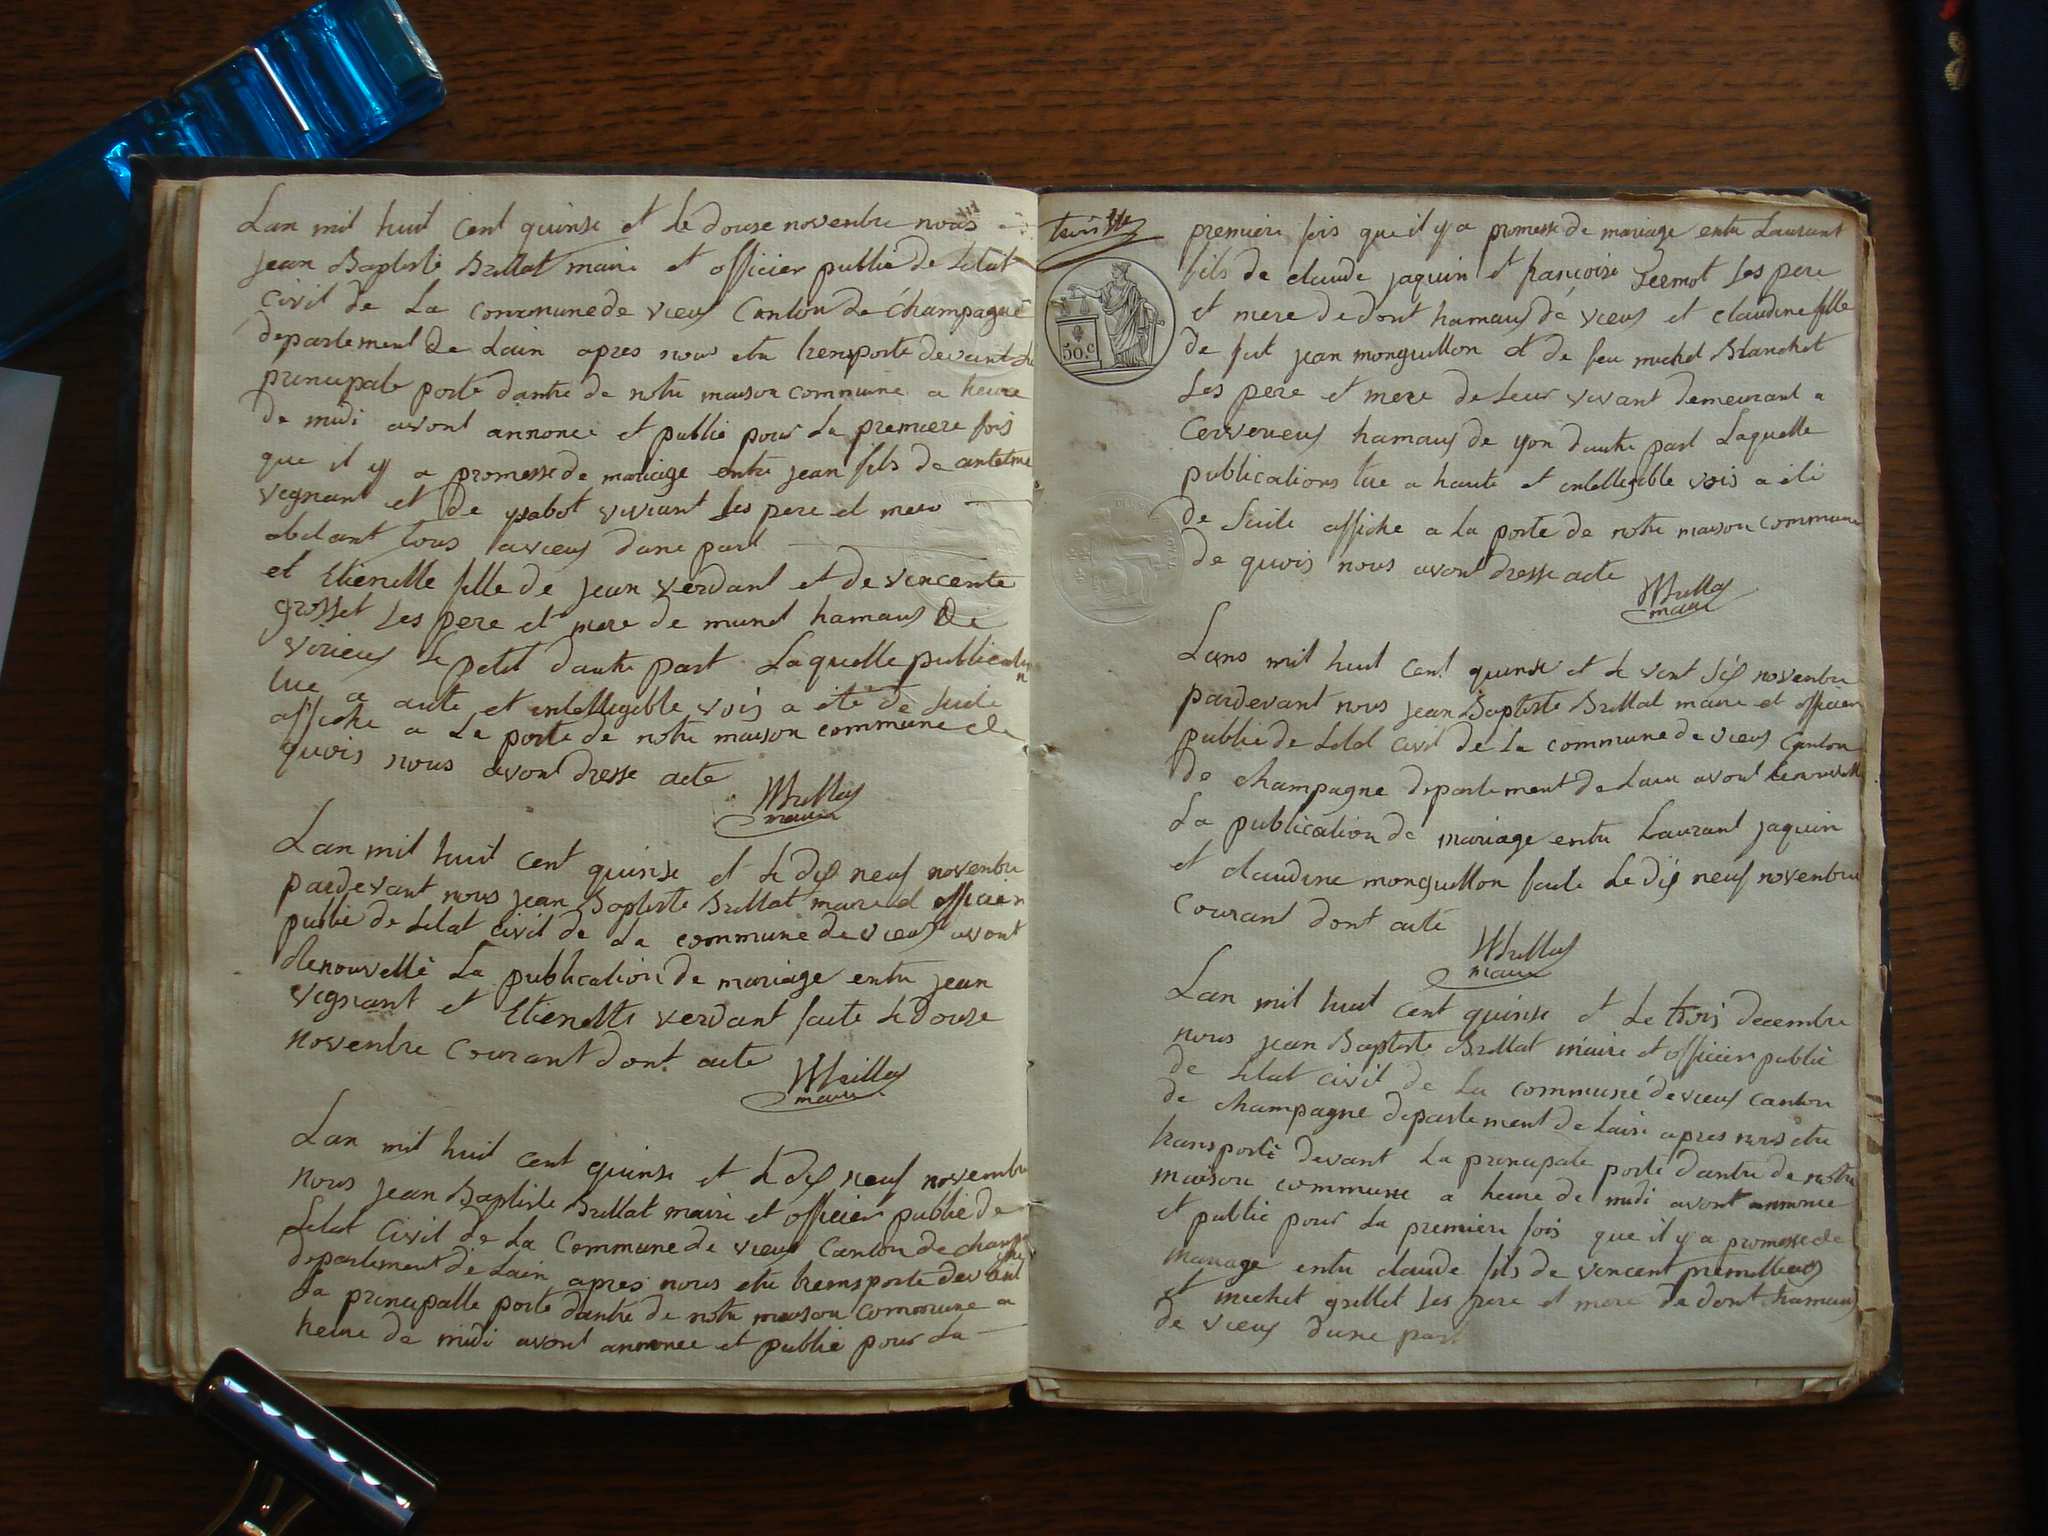 Lan mil huit Cent quinse et le douse novenbre nous
jean Baptiste Brillat maire et officier publie de Letat
civil de La commune de vieus Canton de champagne
departement de Lain apres nous etre trensporte devant la
principale porte dantré de notre maison commune a heure
de midi avont annoncé et publié pour La premiere fois
que il y a promesse de mariage entre jean fils de antelme
vignant et de ysabot viviant Les pere et mere
abitant tous avieus dune part
et Etienette fille de jean verdant et de vincente
grosset Les pere et mere de munet hamaus de
virieus le petit dautre part Laquelle publication
lue a aute et intellegible vois a été de suite
affiche a La porte de notre maison commune de
quois nous avont dresse acte
Brillat
maire
Lan mil huit cent quinse et le dis neuf novenbre
pardevant nous jean Baptiste Brillat maire et officier
publié de Letat civil de La commune de vieus avont
Renouvellé La publication de mariage entre jean
vignant et Etienette verdant faite Le douse
novenbre courant dont acte
Brillat
maire
Lan mil huit cent quinse et le dis neuf novembre
nous jean Baptiste Brillat maire et officier publié de
Letat Civil de La Commune de vieus Canton de champagne
departement de Lain apres nous etre trensporte devant
La principalle porte dantré de notre maison commune a
heure de midi avont annonce et publié pour La
trois
50.c
premiere fois que il y a promesse de mariage entre Laurant
fils de claude jaquin et francoise Les pere
et mere de dont hamaus de vieus et claudine fille
de fut jean monguillon et de feu michel Blanchet
Les pere et mere de Leur vivant demeurant a
Cerverieus hamaus de yon dautre part Laquelle
publications lue a haute et intellegible vois a été
de suite affiche a la porte de notre maison commune
de quois nous avont dresse acte
Brillat
maire
Lans mil huit cent quinse et le vent sis novenbre
pardevant nous jean Baptiste Brillat maire et officier
publié de Letat civil de La commune de vieus Canton
de champagne departement de Lain avont renouvellé
La publication de mariage entre Laurant jaquin
et claudine monguillon faite Le dis neuf novembre
courant dont acte
Brillat
maire
Lan mil huit cent quinse et Le trois decembre
nous jean Baptiste Brillat maire et officier publié
de Letat civil de La commune de vieus canton
de champagne departement de Lain apres nous etre
transporté devant La principale porte dantré de notre
maison commune a heure de midi avont annonce
et publié pour La premiere fois que il y a promesse de
mariage entre claude fils de vincent premillieus
et michel grillet Les pere et mere de dont hamaus
de vieus dune part